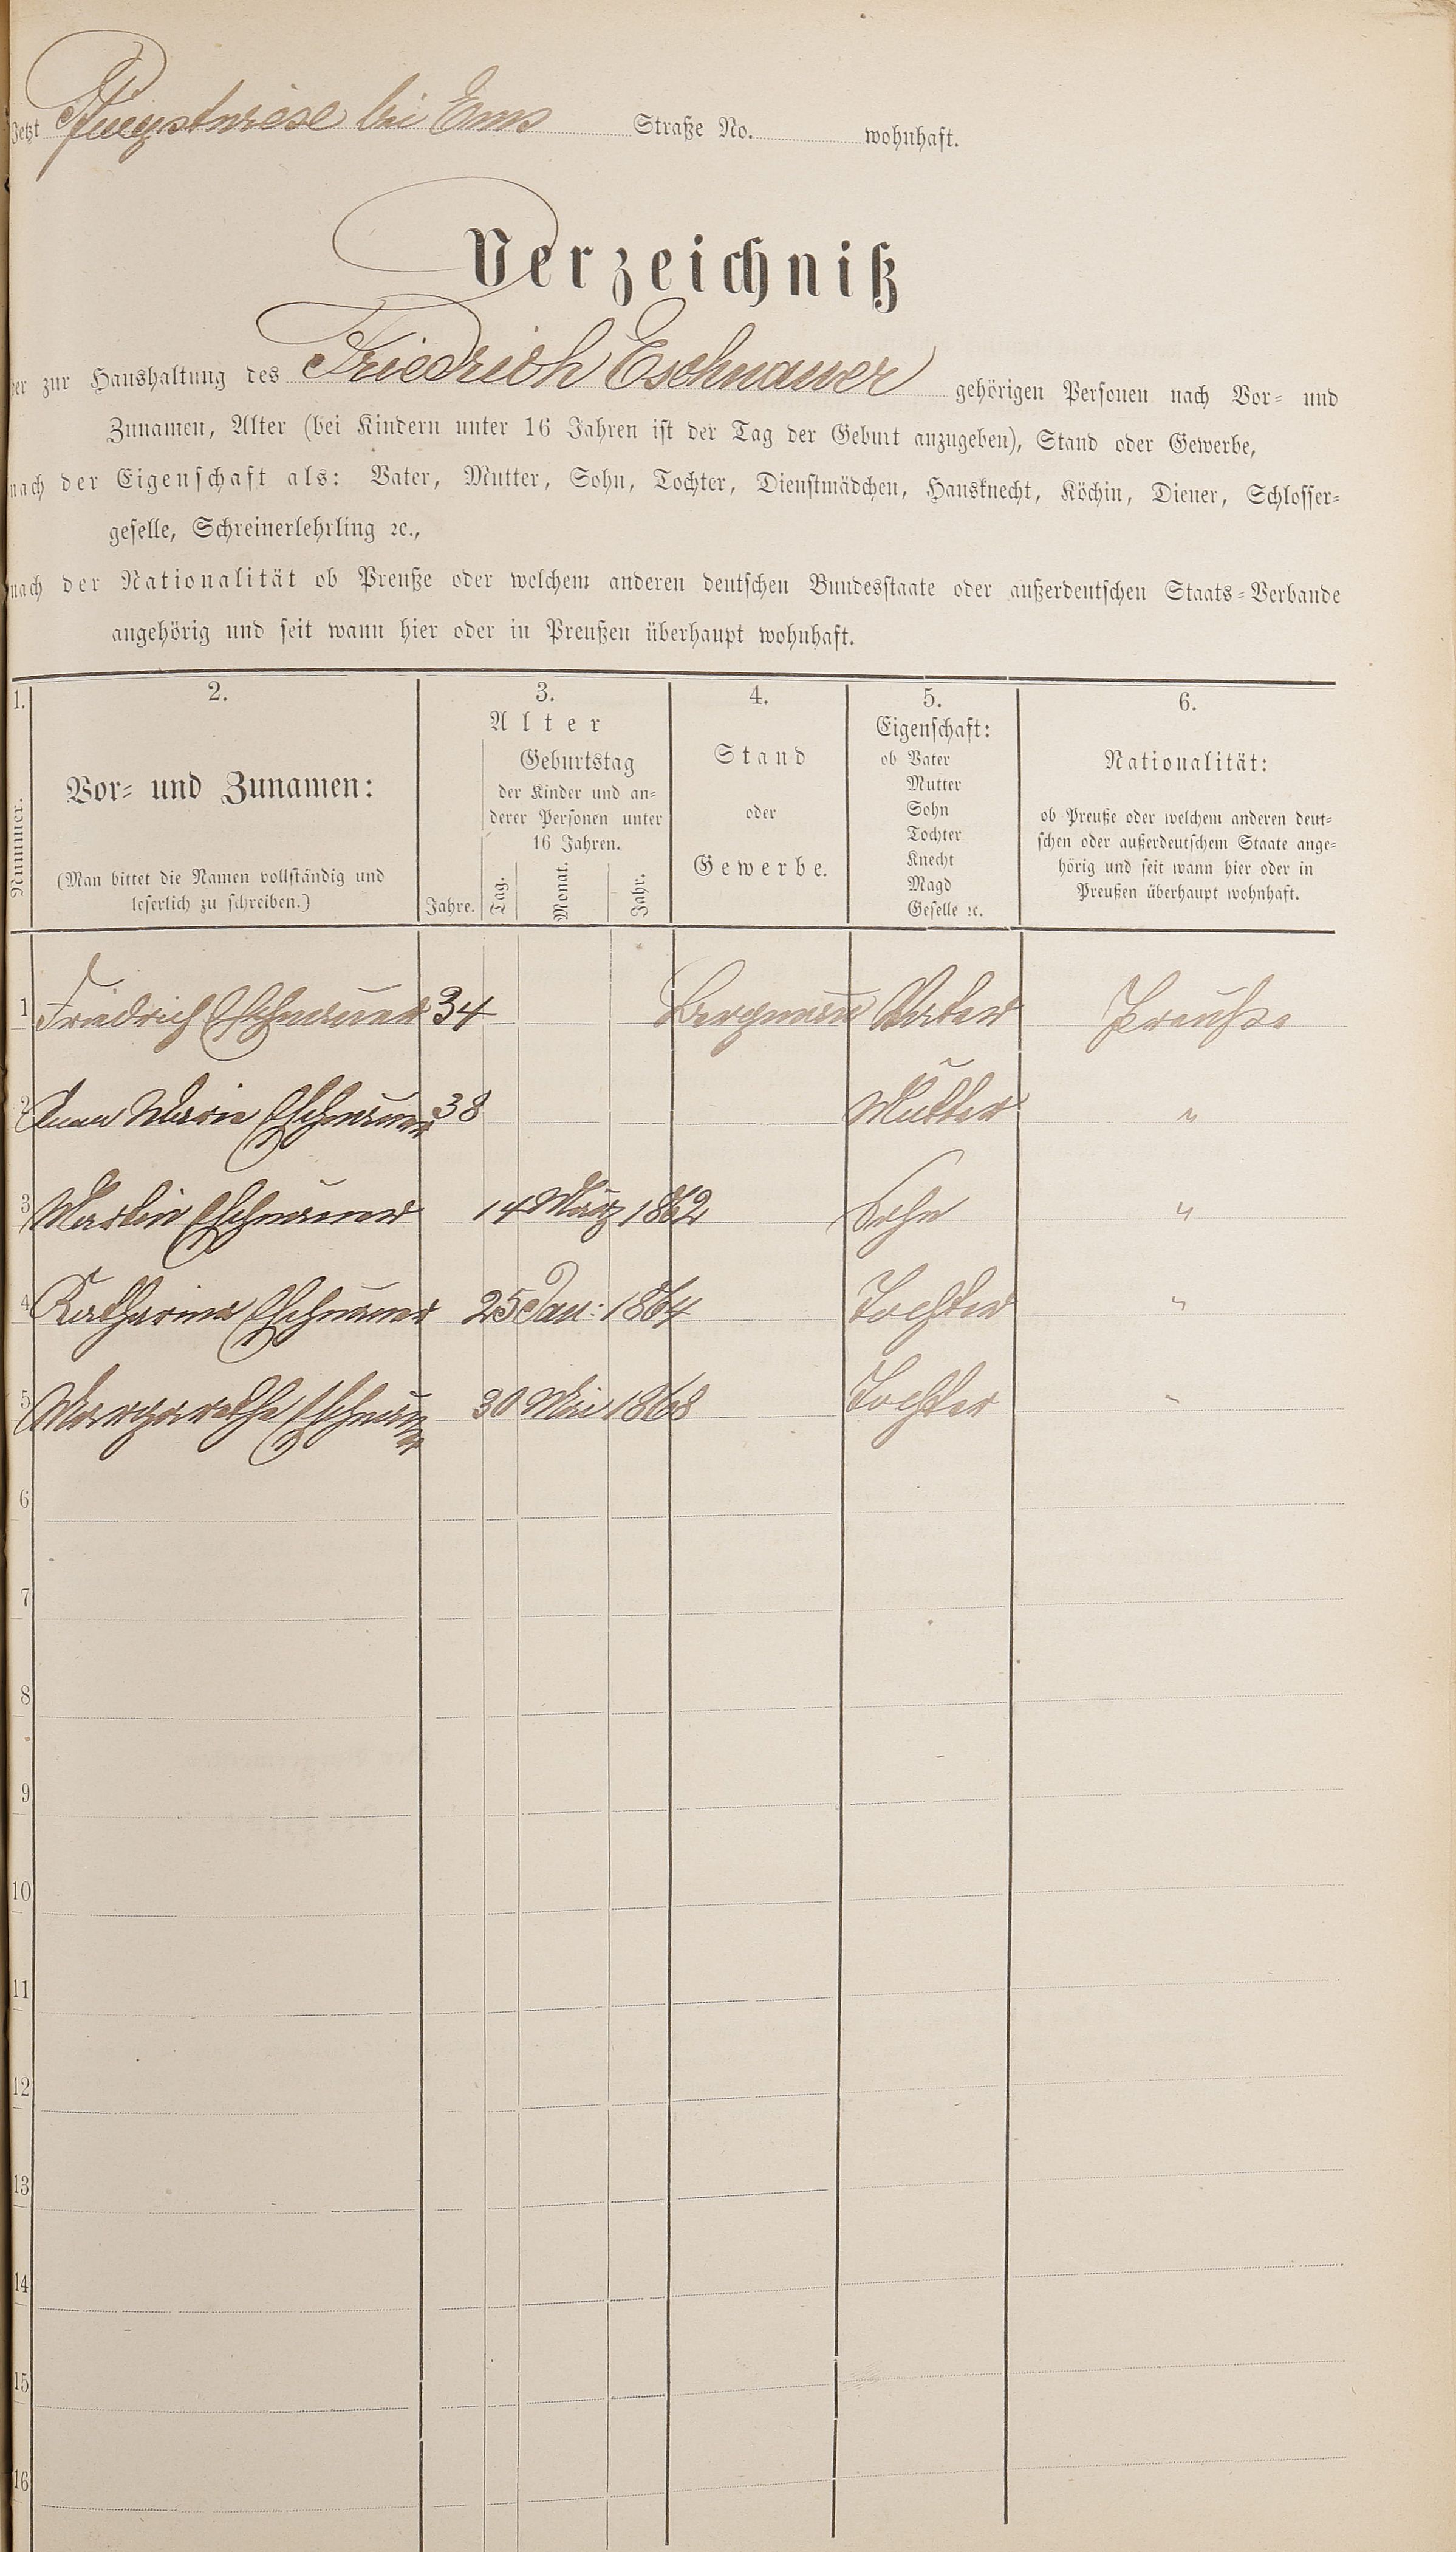 Jetzt Pfingstwiese bei Ems Straße No. wohnhaft.
Verzeichniß
der zur Haushaltung des Friedrich Eschnauer gehörigen Personen nach Vor- und
Zunamen, Alter (bei Kindern unter 16 Jahren ist der Tag der Geburt anzugeben), Stand oder Gewerbe,
nach der Eigenschaft als: Vater, Mutter, Sohn, Tochter, Dienstmädchen, Hausknecht, Köchin, Diener, Schlosser-
geselle, Schreinerlehrling ꝛc.,
nach der Nationalität ob Preuße oder welchem anderen deutschen Bundesstaate oder außerdeutschen Staats-Verbande
angehörig und seit wann hier oder in Preußen überhaupt wohnhaft.
1.
Nummer.
2.
Vor- und Zunamen:
(Man bittet die Namen vollständig und
leserlich zu schreiben.)
3.
Alter
Jahre.
Geburtstag
der Kinder und an-
derer Personen unter
16 Jahren.
Tag.
Monat.
Jahr.
4.
Stand
oder
Gewerbe.
5.
Eigenschaft:
ob Vater
Mutter
Sohn
Tochter
Knecht
Magd
Geselle ꝛc.
6.
Nationalität:
ob Preuße oder welchem anderen deut-
schen oder außerdeutschem Staate ange-
hörig und seit wann hier oder in
Preußen überhaupt wohnhaft.
1 Friedrich Eschnauer 34 Bergmann Vater Preuße
2 Anna Maria Eschnauer 38 Mutter "
3 Martin Eschnauer 14 März 1862 Sohn "
4 Katharina Eschnauer 25 Jan: 1864 Tochter "
5 Margarethe Eschnauer 30 Mai 1868 Tochter "
6
7
8
9
10
11
12
13
14
15
16